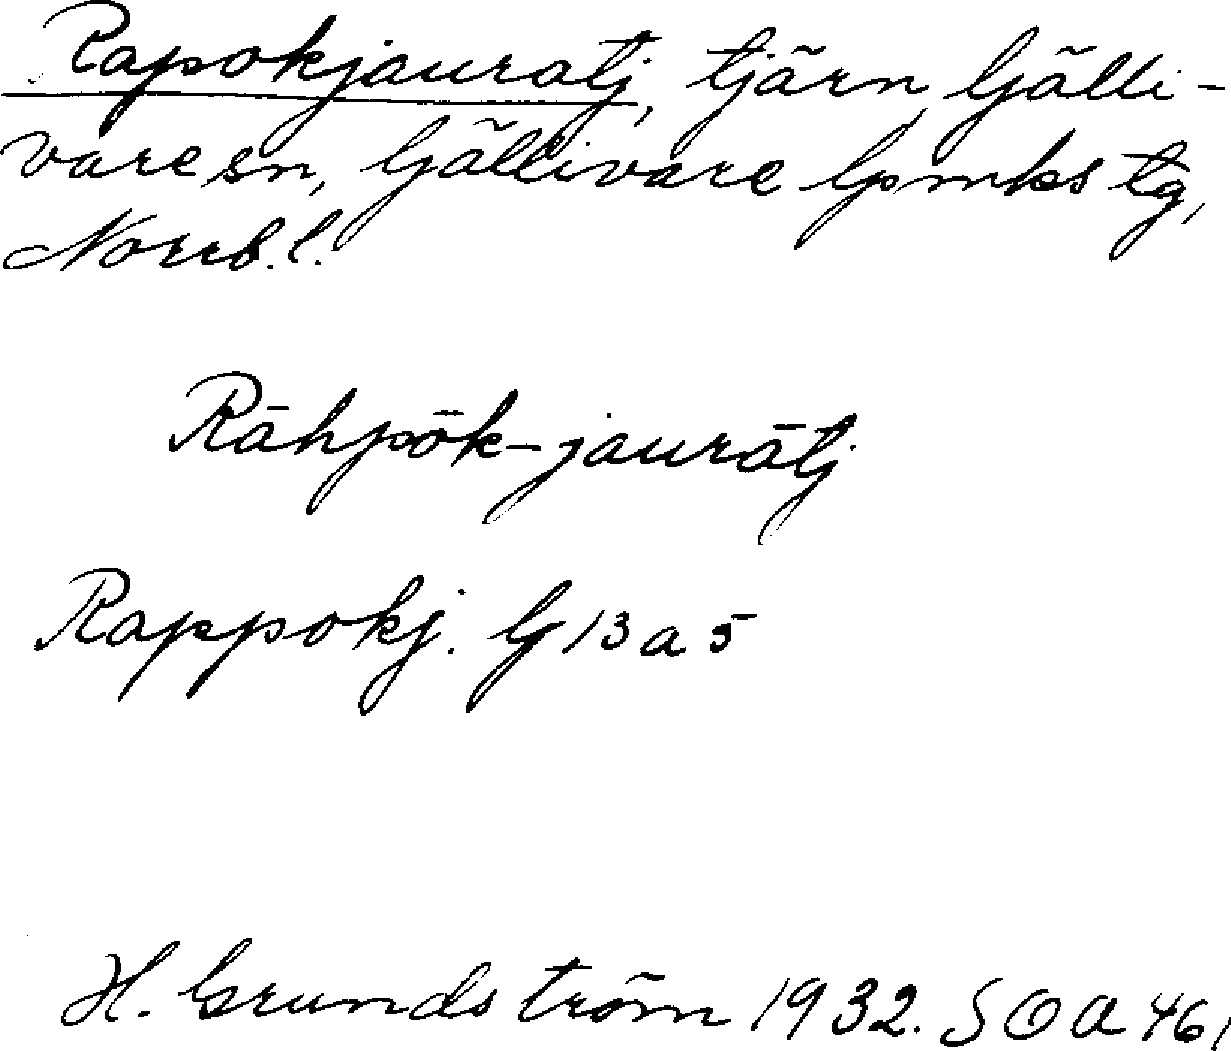 Rapokjauratj, tjärn, Gälli-
vare sn, Gällivare lpmks tg,
Norrb. l.
Rāhpōk-jaurātj
Rappokj. G 13 a 5
H. Grundström 1932. SOA 461